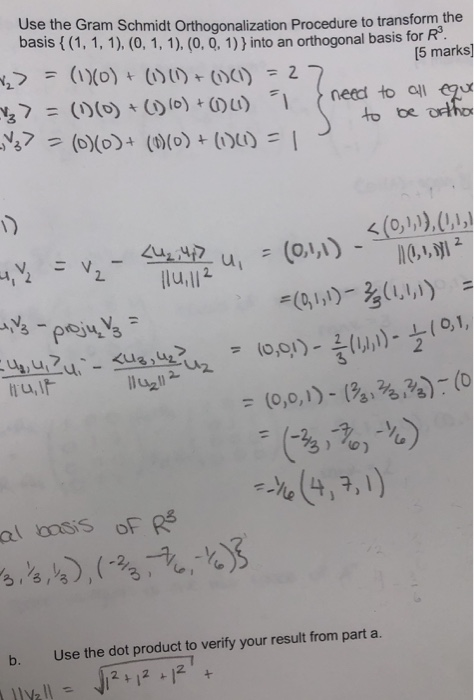 Use the Gram Schmidt Orthogonalization Procedure to transform the
basis { (1, 1, 1), (0, 1, 1), (0, 0, 1) } into an orthogonal basis for R³.
[5 marks]
V₂> = (1)(0) + (1)(1) + (1)(1) = 2
V₃> = (1)(0) + (1)(0) + (1)(1) = 1 need to all equ
V₃> = (0)(0) + (1)(0) + (1)(1) = 1 to be ortho
1)
u₁V₂ = V₂ - <u₂,u₁>/||u₁||² u₁ = (0,1,1) - <(0,1,1),(1,1,1/||(1,1,1)||²
= (0,1,1) - 2/3(1,1,1) =
u₁V₃ - proju₂V₃ =
<u₃,u₁>/||u₁||² u₁ - <u₃,u₂>/||u₂||² u₂ = (0,0,1) - 2/3(1,1,1) - 1/2(0,1,
= (0,0,1) - (2/3, 2/3, 2/3) - (0
= (-2/3, -7/6, -1/6)
= -1/6(4,7,1)
al basis of R³
/3, 1/3, 1/3), (-2/3, -7/6, -1/6)}
b. Use the dot product to verify your result from part a.
||V₂|| = √1² + 1² + 1² +